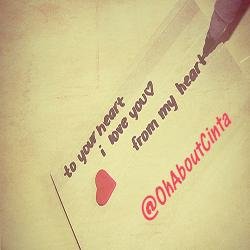 to your heart
i love you♡
from my heart
@OhAboutCinta